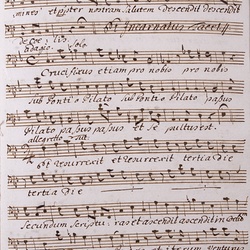 mines et propter nostram salutem Descendit descendit
Et Incarnatus tacet
de Coe lis.
adagio. Solo
Crucifixus etiam pro nobis pro nobis
sub Pontio Pilato sub Pontio Pilato passus
Pilato passus passus et se pultus est.
allegretto
Et resurrexit et resurrexit tertia Die
tertia Die
secundum Scriptu ras et ascendit ascendit in Coelo
et iterum Venturus